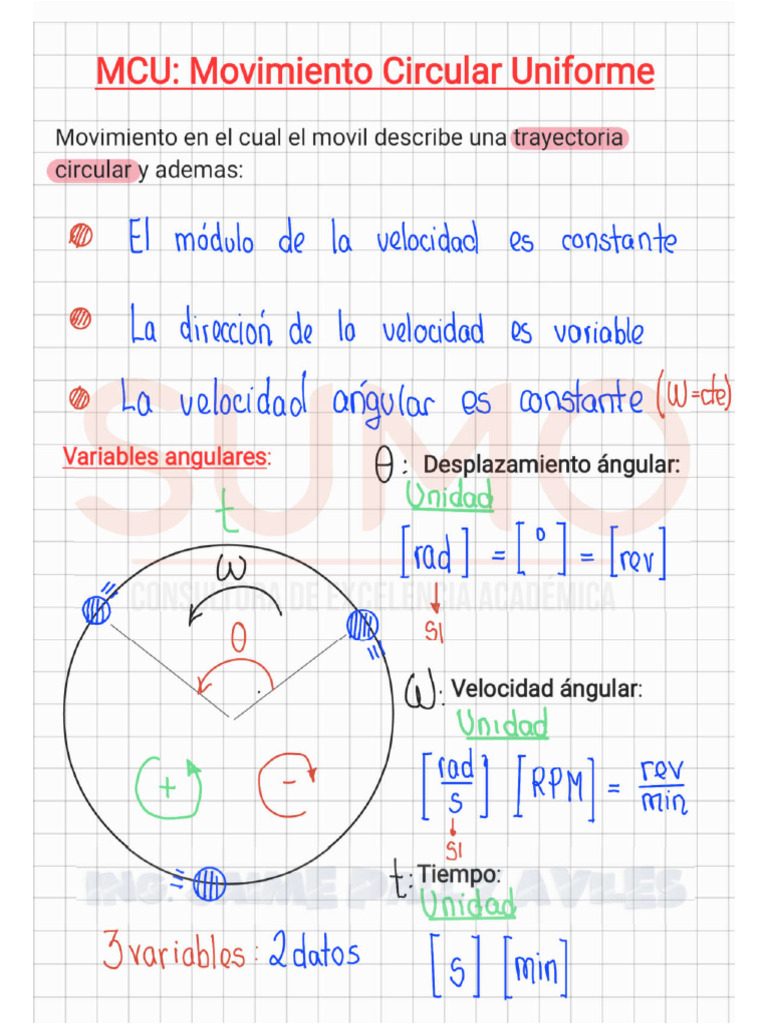 MCU: Movimiento Circular Uniforme
Movimiento en el cual el movil describe una trayectoria
circular y ademas:
El módulo de la velocidad es constante
La dirección de la velocidad es variable
La velocidad angular es constante (W=cte)
SUMO
CONSULTORA DE EXCELENCIA ACADÉMICA
Variables angulares:
t
ω
θ
+
-
θ: Desplazamiento ángular:
Unidad
[rad] = [°] = [rev]
SI
ω: Velocidad ángular:
Unidad
[rad/s] [RPM] = rev/min
SI
t: Tiempo:
Unidad
[s] [min]
ING. JAIME AVILES
3 variables: 2 datos